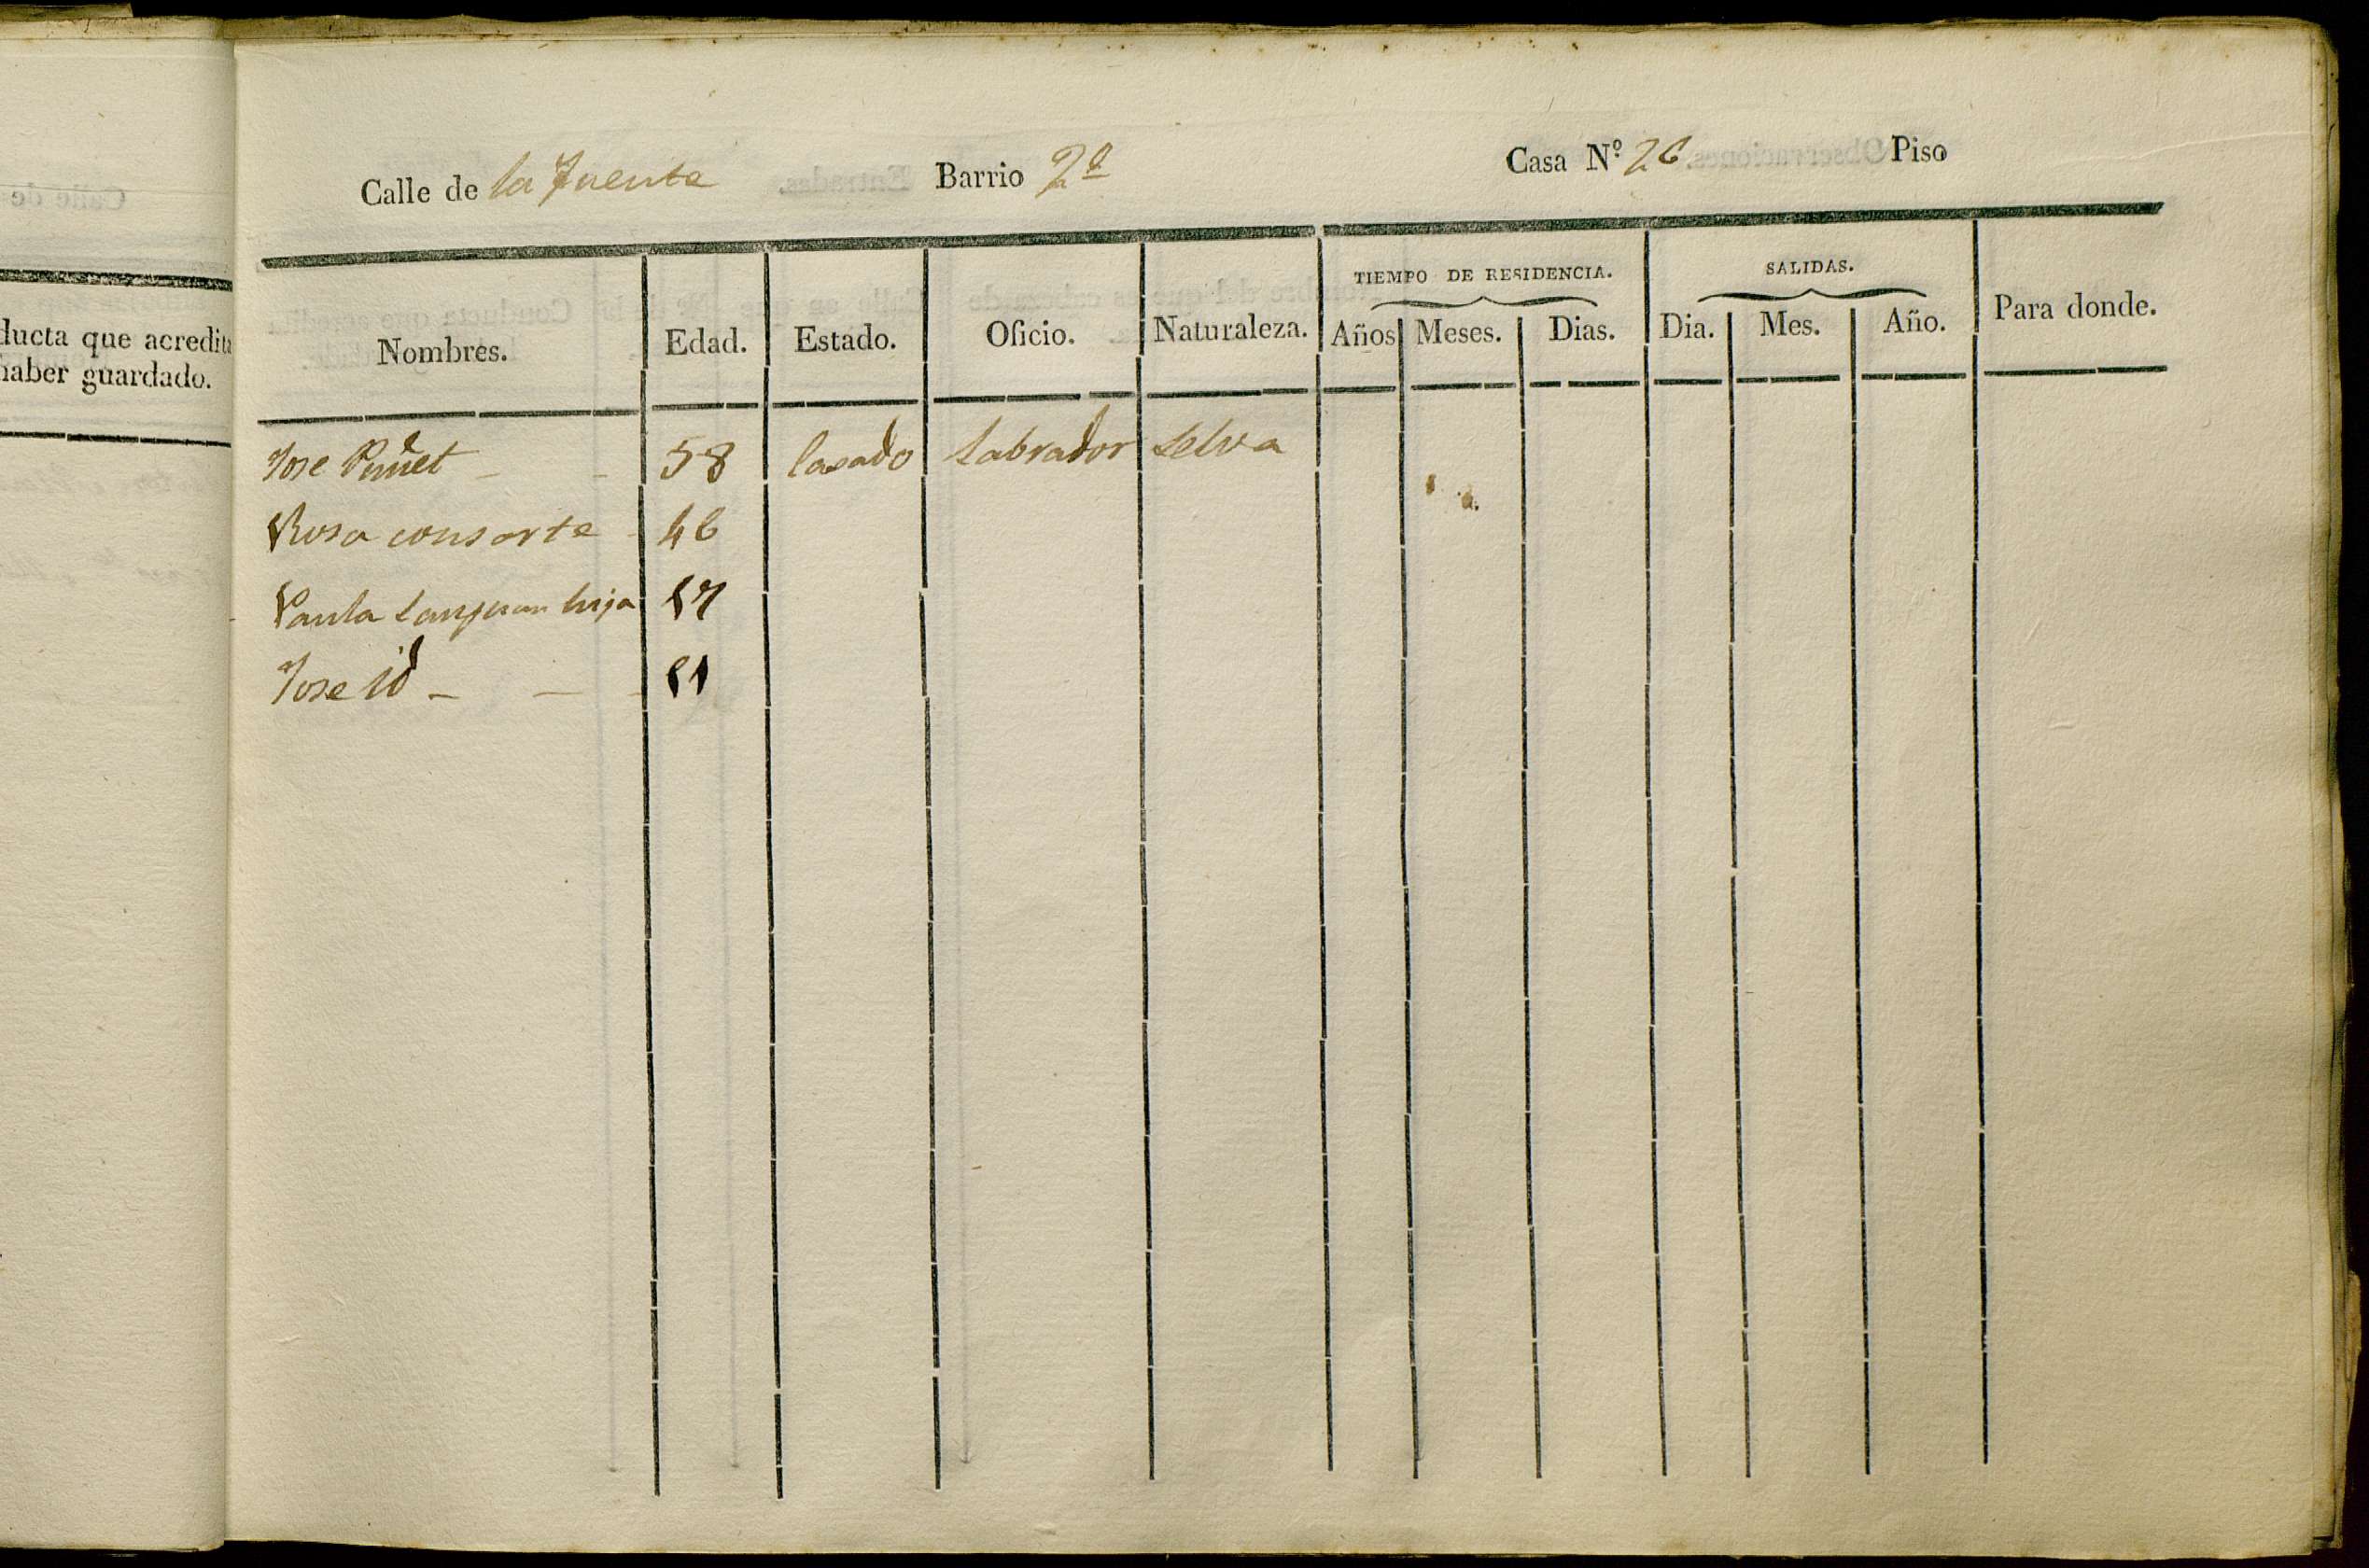 ducta que acredita
haber guardado.
Calle de la Fuente Barrio 2º Casa N.º 26 Piso
TIEMPO DE RESIDENCIA. SALIDAS.
Nombres. Edad. Estado. Oficio. Naturaleza. Años Meses. Dias. Dia. Mes. Año. Para donde.
Jose Puñet 58 Casado Labrador Selva
Rosa consorte 46
Paula hija 17
Jose id 11